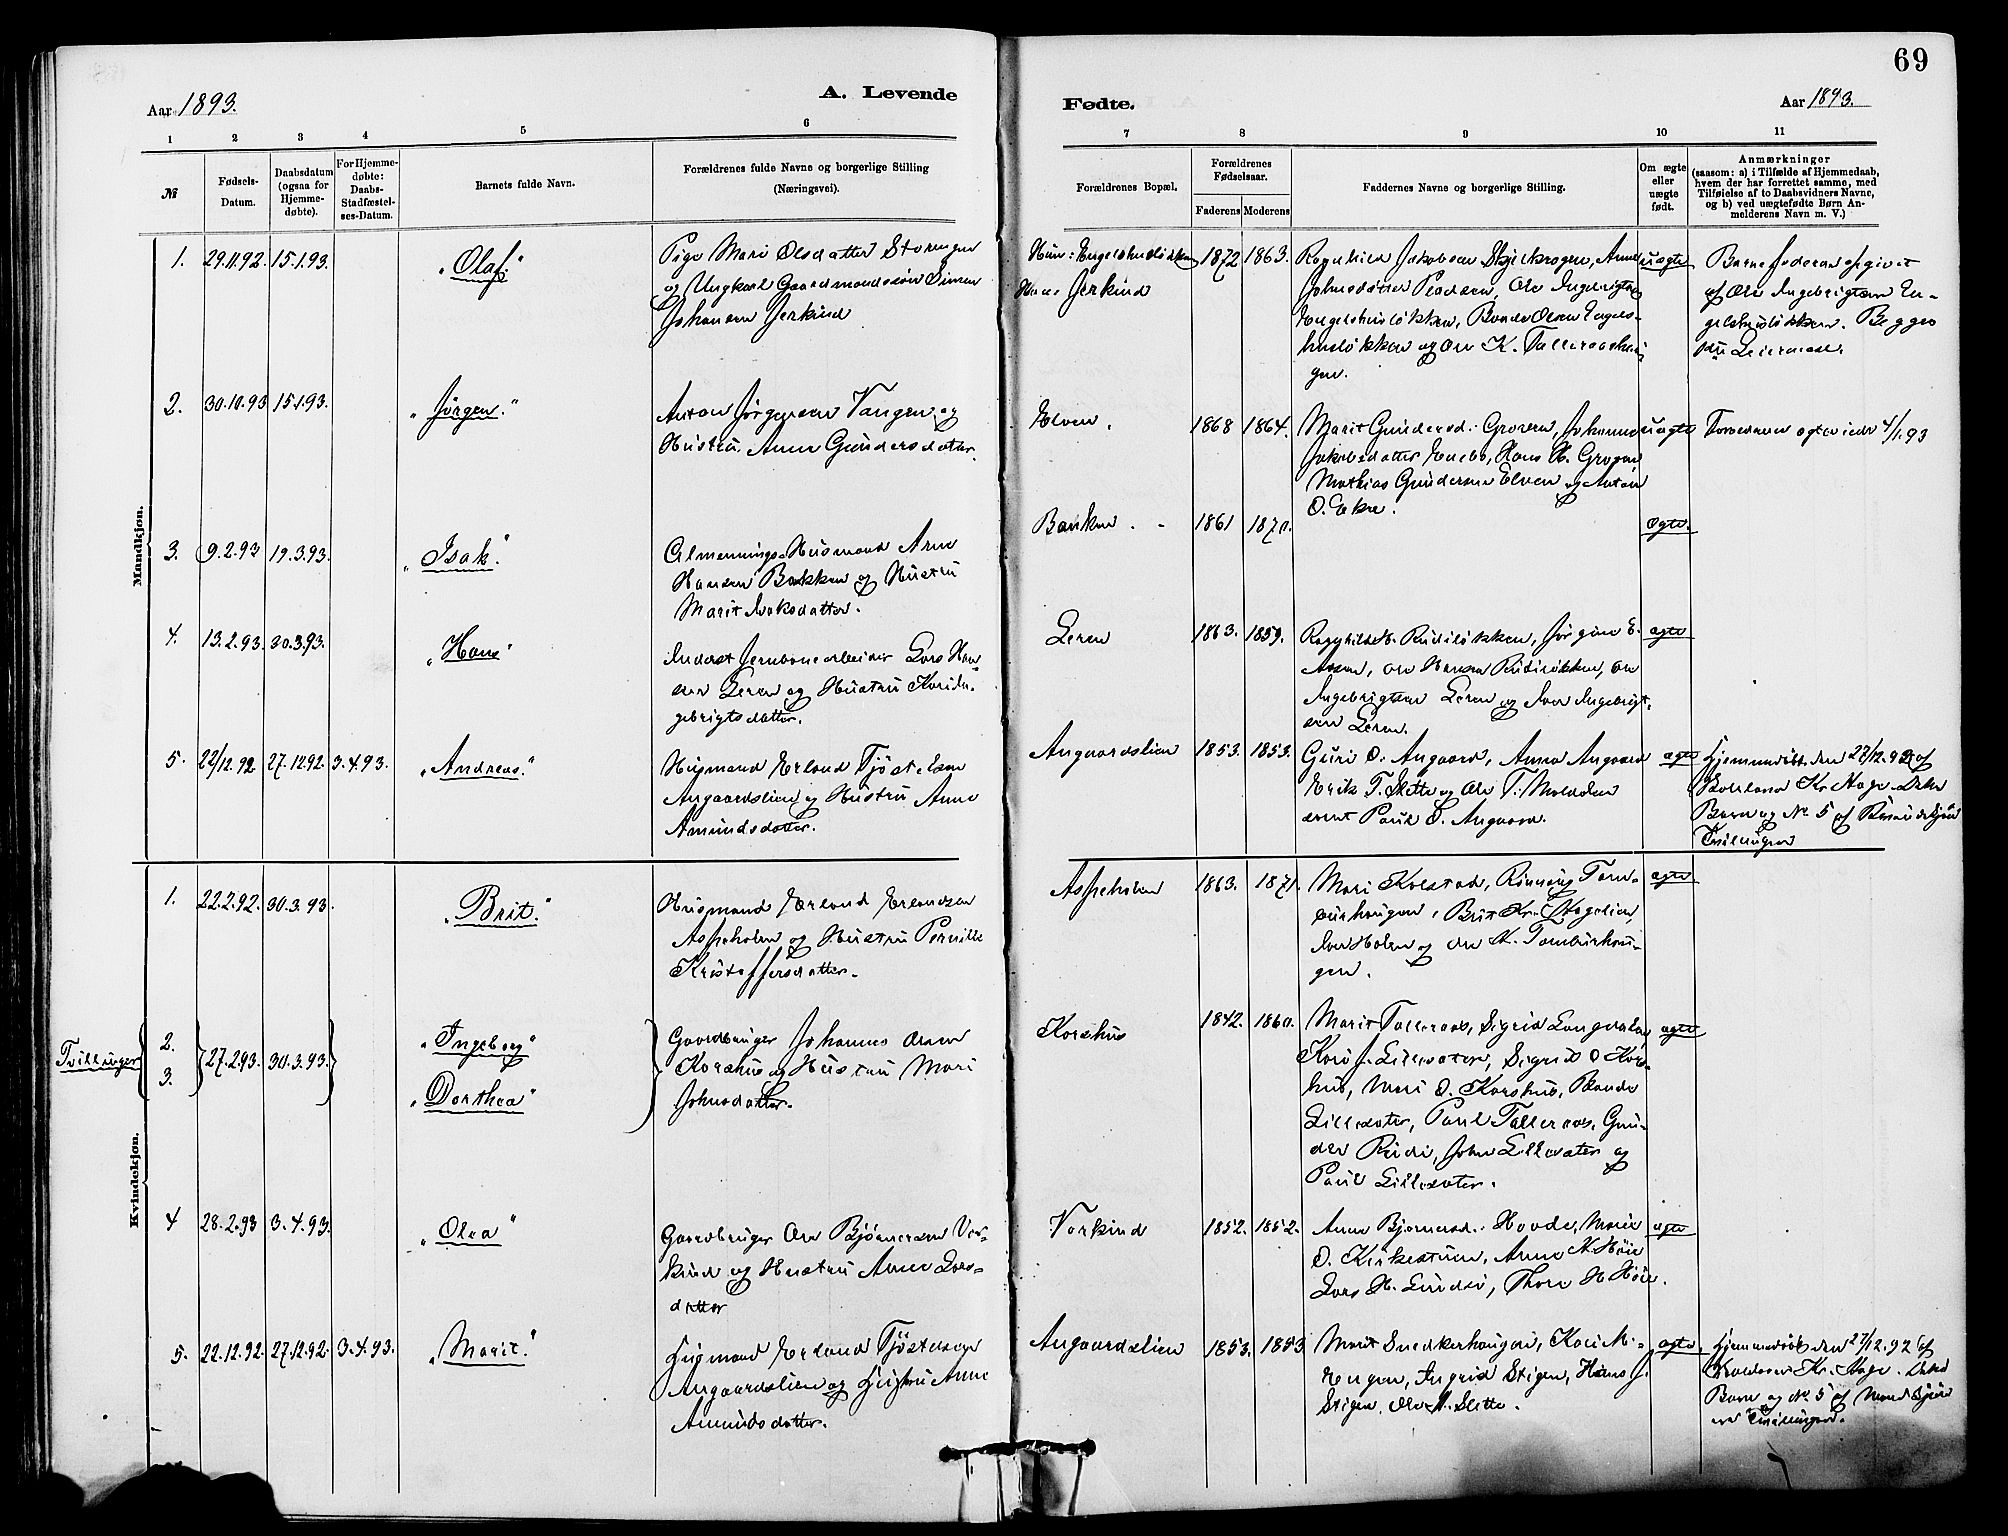 69
Aar 1893.
A. Levende
Fødte.
Aar 1893.
1 2 3 4 5 6
7 8 9 10 11
№
Fødsels-
Datum.
Daabsdatum
(ogsaa for
Hjemme-
døbte).
For Hjemme-
døbte:
Daabs-
Stadfæstel-
ses-Datum.
Barnets fulde Navn.
Forældrenes fulde Navne og borgerlige Stilling
(Næringsvei).
Forældrenes Bopæl.
Forældrenes
Fødselsaar.
Faderens Moderens
Faddernes Navne og borgerlige Stilling.
Om ægte
eller
uægte
født.
Anmærkninger
(saasom: a) i Tilfælde af Hjemmedaab,
hvem der har forrettet samme, med
Tilføielse af to Daabsvidners Navne,
og b) ved uægtefødte Børn An-
melderens Navn m. V.)
Mandkjøn.
1. 29.11.92. 15.1.93. "Olaf."
Pige Mari Olsdatter Storengen
og Ungkarl Gaardmandssøn Simen
Johansen Jerkind
Hun: Engelshusløkken
Han: Jerkind
1872 1863.
Ragnhild Jakobsen Skjelkrogen, Anne
Johnsdatter Pladsen, Ole Ingebrigtsen
Engelshusløkken, Baard Olsen Engels-
husløkken og Ole K. Talleraashau-
gen.
uægte
Barnefaderen opgivet
af Ole Ingebrigtsen En-
gelshusløkken. Begges
1ste Leiermaal.
2. 30.10.93 15.1.93. "Jørgen."
Anton Jørgensen Vangen og
Hustru Anne Gundersdatter.
Elven.
1868 1864.
Marit Gundersd. Groven, Johanne
Jakobsdatter Enebo, Hans H. Grogan
Mathias Gundersen Elven og Anton
O. Ekre.
uægte
Forældrene egteviede 4/1.93
3. 9.2.93 19.3.93. "Isak."
Almennings-Husmand Arne
Hansen Bakken og Hustru
Marit Isaksdatter.
Bakken.
1861 1870.
ægte.
4. 13.2.93. 30.3.93. "Hans"
Inderst Jernbanearbeider Lars Han-
sen Leren og Hustru Kari In-
gebrigtsdatter.
Leren
1863. 1859.
Ragnhild H. Rudiløkken, Jørgine E.
Aasen, Ole Hansen Rudiløkken, Ole
Ingebrigtsen Leren og Iver Ingebrigt-
sen Leren.
ægte
5. 22/12.92 27.12.92. 3.4.93. "Andreas."
Husmand Erland Tjøstelsen
Angaardslien og Hustru Anne
Amundsdatter.
Angaardslien
1853. 1853.
Guri O. Angaard, Anna Angaard
Erik T. Slette og Ole T. Moldal
samt Paul O. Angaard.
ægte
Hjemmedøbt den 27/12.92 af
Kr. Hage. Dette
Barn og № 5 af Kvindekjøn
Tvillinger
Kvindekjøn.
1. 22.2.92. 30.3.93. "Brit."
Husmand Erland Erlandsen
Aspeholen og Hustru Pernille
Kristoffersdatter.
Aspeholen
1863. 1871.
Mari Kolstad, Rønnaug Tam-
burhaugen, Brit Kr. Hagelien,
Iver Holen og Ole K. Tamburhau-
gen.
ægte
Tvillinger
2.
3.
27.2.93. 30.3.93.
"Ingeborg"
"Dorthea"
Gaardbruger Johannes Olsen
Korshus og Hustru Mari
Johnsdatter.
Korshus
1842. 1860.
Marit Talleraas, Sigrid Langdalen
Kari J. Lillesæter, Sigrid O. Kors-
hus, Mari O. Korshus, Baard
Lillesæter, Paul Talleraas, Gun-
der Rudi, John Lillesæter og
Paul Lillesæter.
ægte
4 28.2.93 3.4.93. "Olea"
Gaardbruger Ole Bjørnersen Vor-
kind og Hustru Anne Lars-
datter
Vorkind
1852. 1852.
Anne Bjørnersd. Hovde, Marie
O. Kirkestuen, Anne K. Høie
Lars H. Lundsø, Thore H. Høie.
ægte
5. 22.12.92. 27.12.92. 3.4.93. "Marit."
Husmand Erland Tjøstelsen
Angaardslien og Hustru Anne
Amundsdatter.
Angaardslien
1853. 1853
Marit Snedkerhaugen, Kari M.
Engen, Ingrid Stigen, Hans J.
Stigen, Ole A. Slette.
ægte.
Hjemmedøbt den 27/12.92 af
Kr. Hage. Dette
Barn og № 5 af Mandkjøn
er Tvillinger.